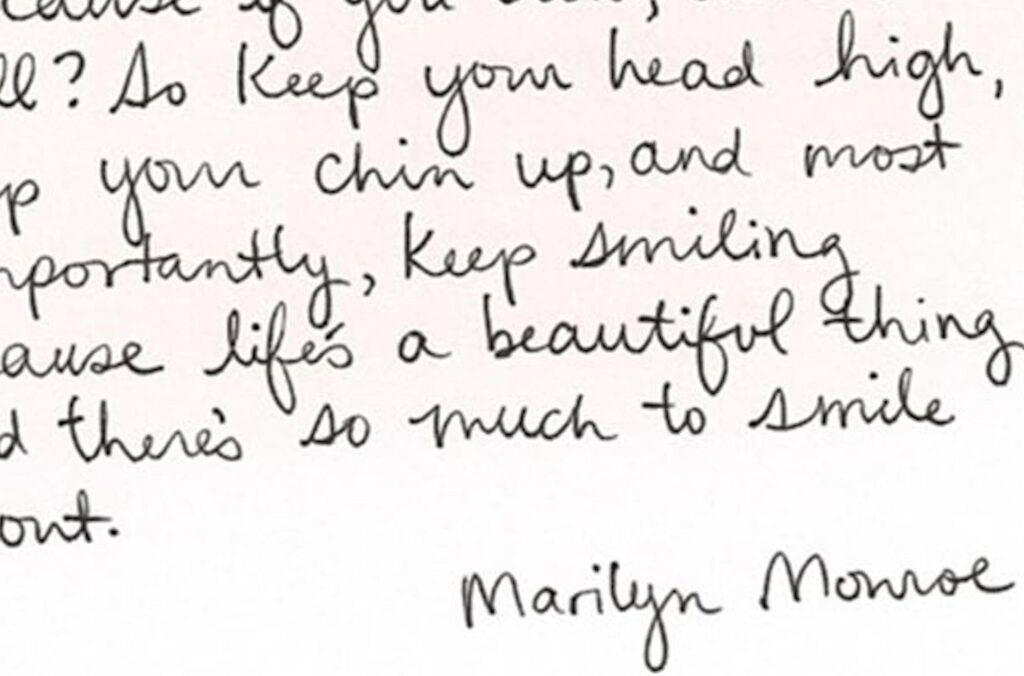 cause if you
ll? So keep your head high,
p your chin up, and most
mportantly, keep smiling
ause life's a beautiful thing
d there's so much to smile
out.
Marilyn Monroe